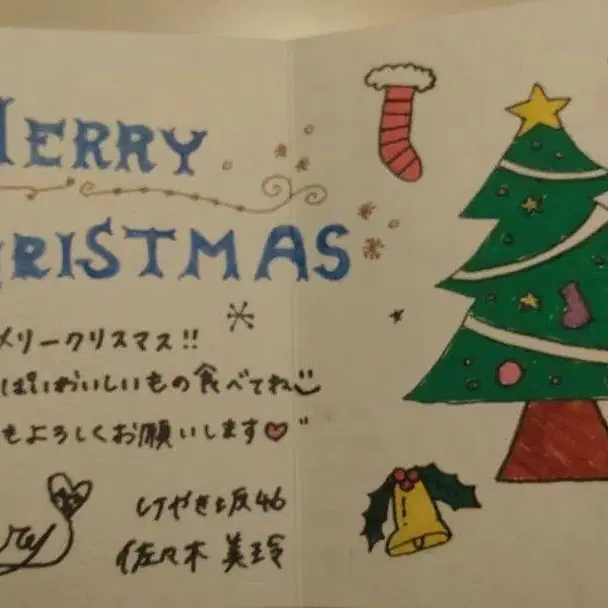 MERRY
CHRISTMAS
メリークリスマス!!
ぱいおいしいもの食べてね
もよろしくお願いします♡
けやき坂46
佐々木 美玲